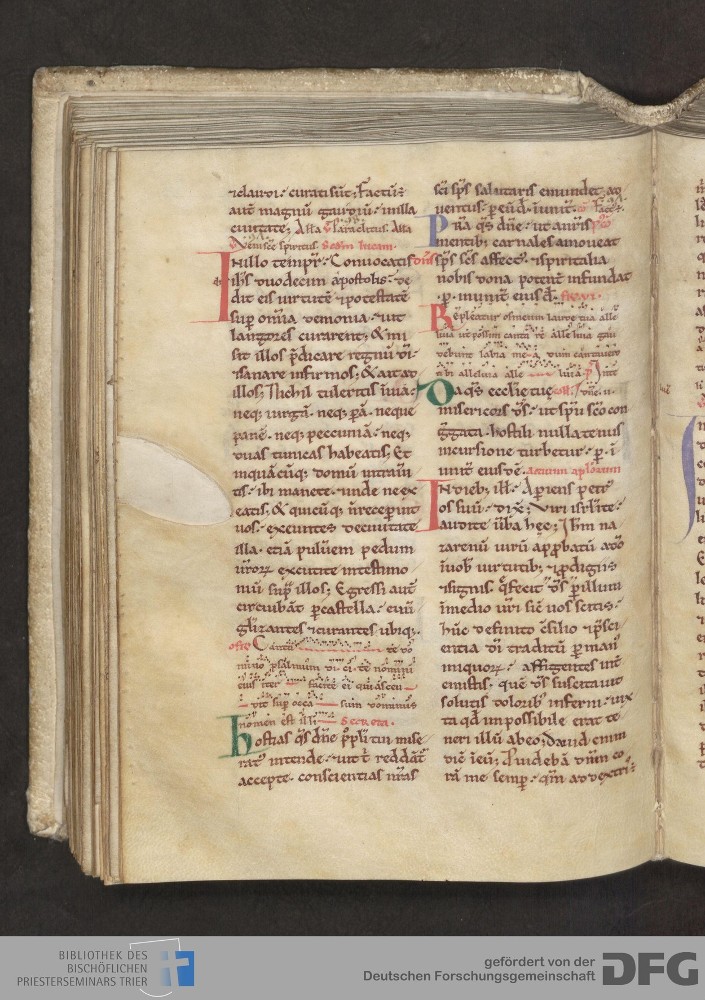 ⁊claudi· curati sūt; Factū ē
autē magnū gaudiū· in illa
ciuitate; Alla Paraclitus. Alla
Veni sc̄e spiritus. Secdm lucam.
In illo tempr̄· Conuocatis dn̄s
ih̄s duodecim apostolis· de
dit eis uirtutē ⁊ potestatē
sup om̄ia demonia· ⁊ ut
langores curarent; & mi
sit illos p̄dicare regnū dī·
⁊ sanare infirmos; & ait ad
illos; Nichil tuleritis ī uia·
neq; uirgā· neq; pā· neque
panē· neq; peccuniā· neq;
duas tunicas habeatis; Et
in quācūq; domū intraūi
tis· ibi manete· ⁊ inde ne ex
eatis; & quicūq; n̄ receperint
uos· exeuntes de ciuitate
illa· etiā puluerem pedum
ur̄orꝝ excutite in testimo
niū supͣ illos; Egressi autē
circuibāt p castella· euū
gl̄izantes ⁊ curantes ubiq;·
ofr̄ Cantate do
mino psalmum dicite nomini
eius iter facite ei qui ascen
dit super occa sum dominus
nomen est illi Secreta.
Hostias q̄s dn̄e ppl̄i tui mise
rat intende· ⁊ ut t reddāt̄
accepte· conscientias nr̄as
sc̄i sp̄s salutaris emundet ad
uentus· p eūd· in unit̄· cō Factus
Pra q̄s dn̄e· ut aurīs
mentib; carnales amoueat
sp̄s sc̄s affect· ⁊ spiritalia
nobis dona potent̄ infundat
·p· in unit̄ eiusd·
Repleatur os meum laude tua alle
luia ut possim cantare alleluia gau
debunt labia mea dum cantauero
tibi alleluia alle luia
Da q̄s ecclīe tue coll̄·
misericors ds̄· ut sp̄u sc̄o con
gregata· hostili nullatenus
incursione turbetur· p· ī
unit̄ eiusdē· actuum apl̄orum
In dieb; ill̄· Aperiens petr̄
os suū· dix̄; Viri isrl̄ite·
audite ūba hęc; Ih̄m na
zarenū uirū approbatū a dō
ī uob̄ uirtutib; ⁊ prodigiis
⁊ signis· q̄ fecit ds̄ p illum
ī medio ur̄i sic̄ uos scitis·
hūc definito c̄silio ⁊ p̄sci
entia dī traditū p man̄
iniquorꝝ· affligentes int̄
emistis· quē ds̄ suscitauit
solutis dolorib; inferni· iux
ta qd impossibile erat te
neri illū ab eo; Dauid enim
dic̄ ī eū; Puidebā dn̄m co
rā me semp· qm̄ a dextris
BIBLIOTHEK DES
BISCHÖFLICHEN
PRIESTERSEMINARS TRIER
gefördert von der
Deutschen Forschungsgemeinschaft
DFG